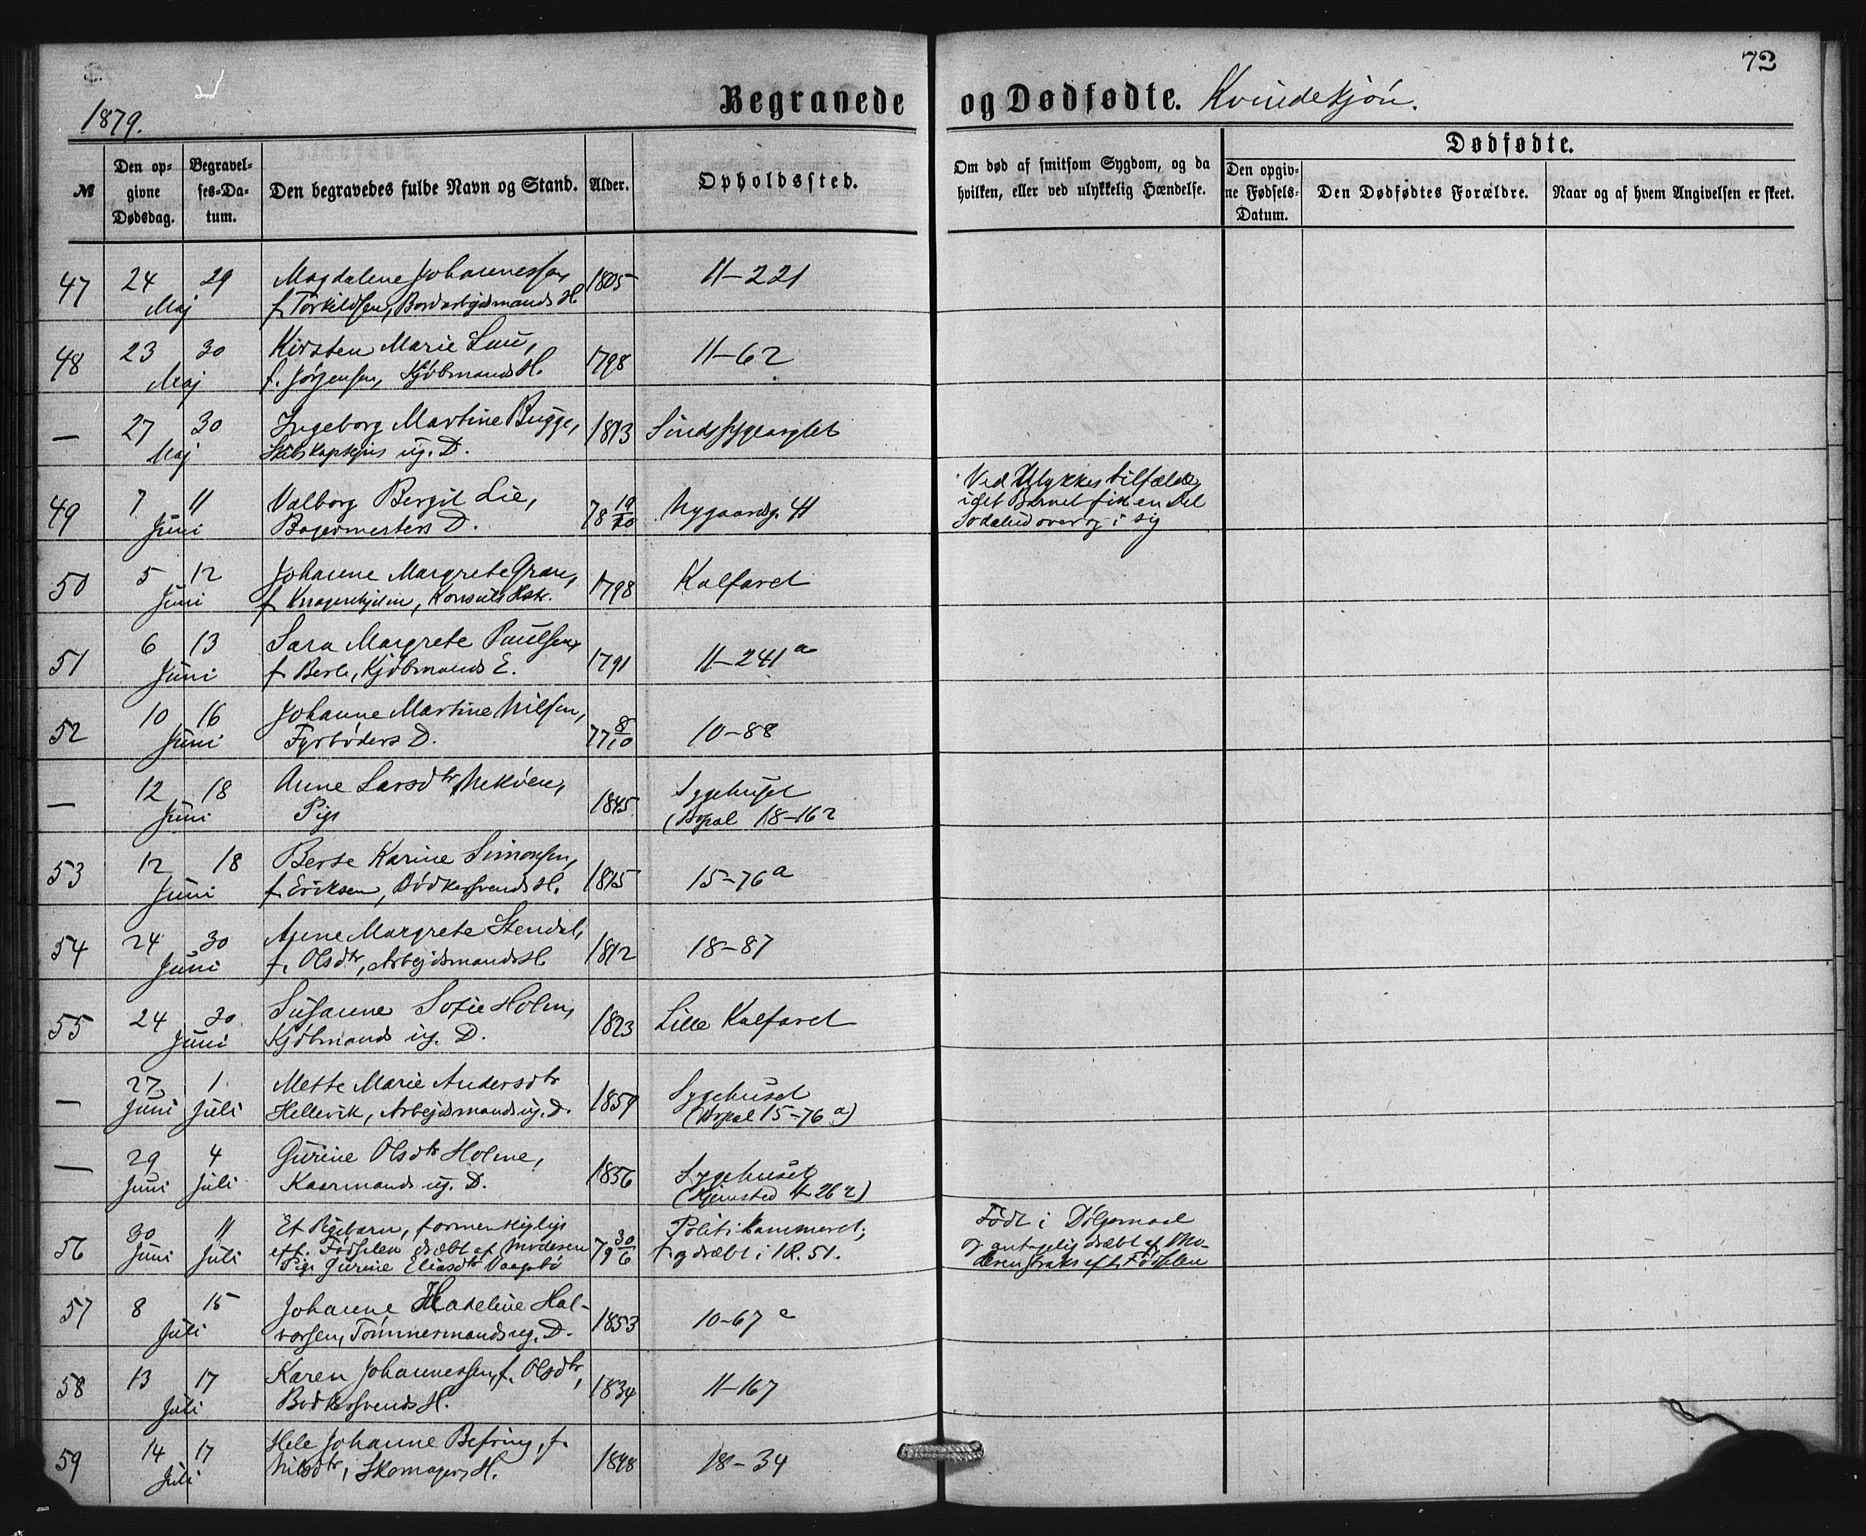 72
1879.
Begravede og Dødfødte. Kvindekjøn.
№
Den opgivne Dødsdag.
Begravelses-Datum.
Den begravedes fulde Navn og Stand.
Alder.
Opholdssted.
Om død af smitsom Sygdom, og da hvilken, eller ved ulykkelig Hændelse.
Dødfødte.
Den opgivne Fødsels-Datum.
Den Dødfødtes Forældre.
Naar og af hvem Angivelsen er skeet.
47 24 29 Magdalene Johannessen, 1805 11-221
Maj f. Torkildsen, Bordarbejdsmands H
48 23 30 Kirsten Marie Lau, 1798 11-62
Maj f. Jørgensen, Kjøbmands H.
— 27 30 Ingeborg Martine Bugge, 1813
Maj ug. D.
49 7 11 Valborg Bergit Lie, 78 19/10 Nygaardsg. 41 Ved Ulykkestilfælde,
Juni Bagermesters D. idet Barnet fik en Del
over og i sig
50 5 12 Johanne Margrete Gran, 1798 Kalfaret
Juni f. Konsuls
51 6 13 Sara Margrete Paulsen, 1791 11-241 a
Juni f. Berle, Kjøbmands E.
52 10 16 Johanne Martine Nilsen, 77 8/10 10-88
Juni Fyrbøders D.
— 12 18 Anne Larsdtr 1845 Sygehuset
Juni Pige (Bopæl 18-162
53 12 18 Berte Karine Simonsen, 1815 15-76 a
Juni f. Eriksen, Bødkersvends H.
54 24 30 Anne Margrete Stendal, 1812 18-87
Juni f. Olsdtr, Arbejdsmands H.
55 24 30 Susanne Sofie Holm, 1823 Lille Kalfaret
Juni Kjøbmands ug. D.
— 27 1 Mette Marie Andersdtr 1859 Sygehuset
Juni Juli Hellevik, Arbejdsmands ug. D. (Bopæl 15-76 a)
— 29 4 Gurine Olsdtr Holme, 1856 Sygehuset
Juni Juli Kaarmands ug. D. (Hjemsted
56 30 11 Et Pigebarn, formentligt 79 30/6 Politikammeret; Født i Dølgsmaal
Juni Juli eft. Fødselen dræbt af Moderen dræbt i 1 R. 51. og antagelig dræbt af Mo-
Pige Gurine Eliasdtr Vaagsbø deren straks eft. Fødselen
57 8 15 Johanne Madeline Hal- 1853 10-67
Juli vorsen, Tømmermands ug. D.
58 13 17 Karen Johannessen, f. Olsdtr, 1834 11-167
Juli Bødkersvends H.
59 14 17 Johanne Befring, f. 18-34
Juli Nilsdtr, Skomagers H.